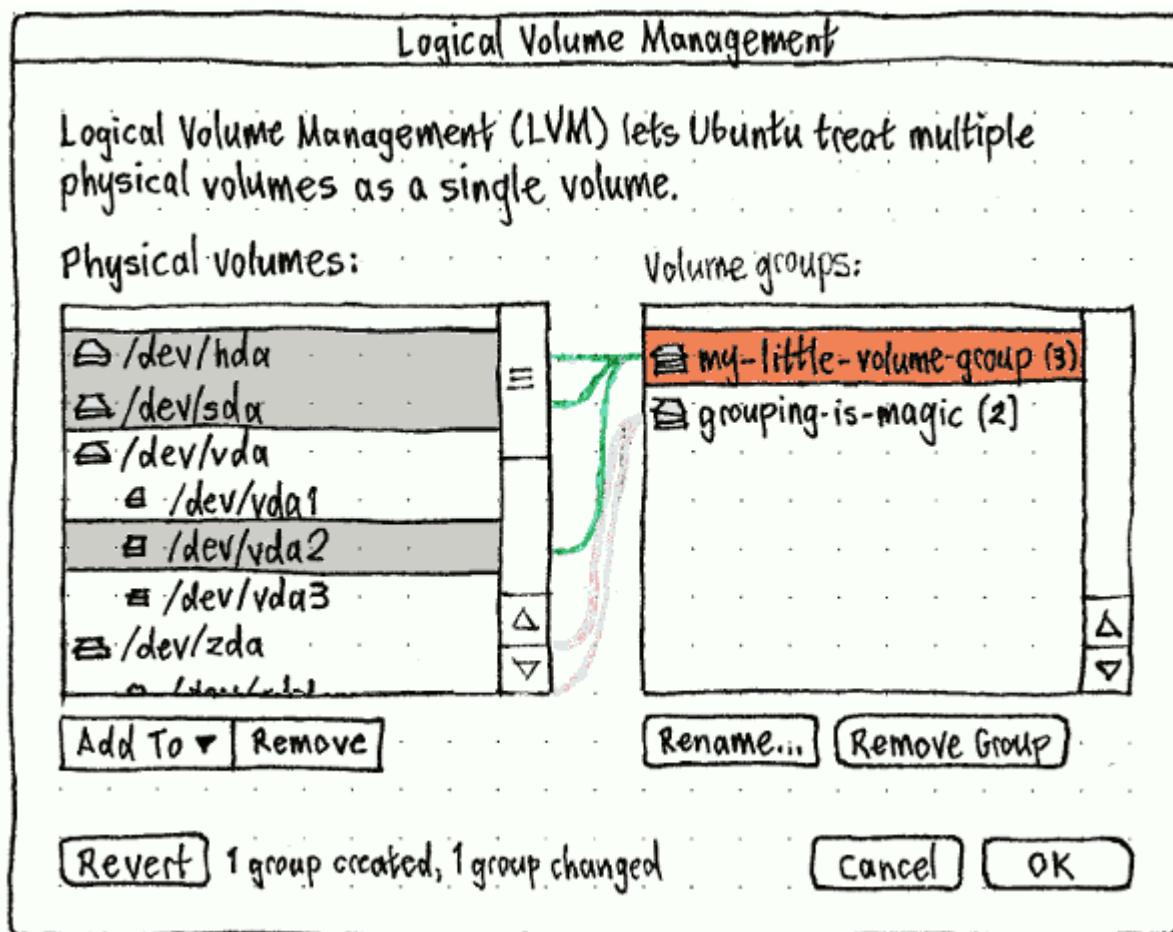 Logical Volume Management
Logical Volume Management (LVM) lets Ubuntu treat multiple
physical volumes as a single volume.
Physical volumes:
/dev/hda
/dev/sda
/dev/vda
/dev/vda1
/dev/vda2
/dev/vda3
/dev/zda
Add To ▾
Remove
Volume groups:
my-little-volume-group (3)
grouping-is-magic (2]
Rename...
Remove Group
Revert
1 group created, 1 group changed
Cancel
OK